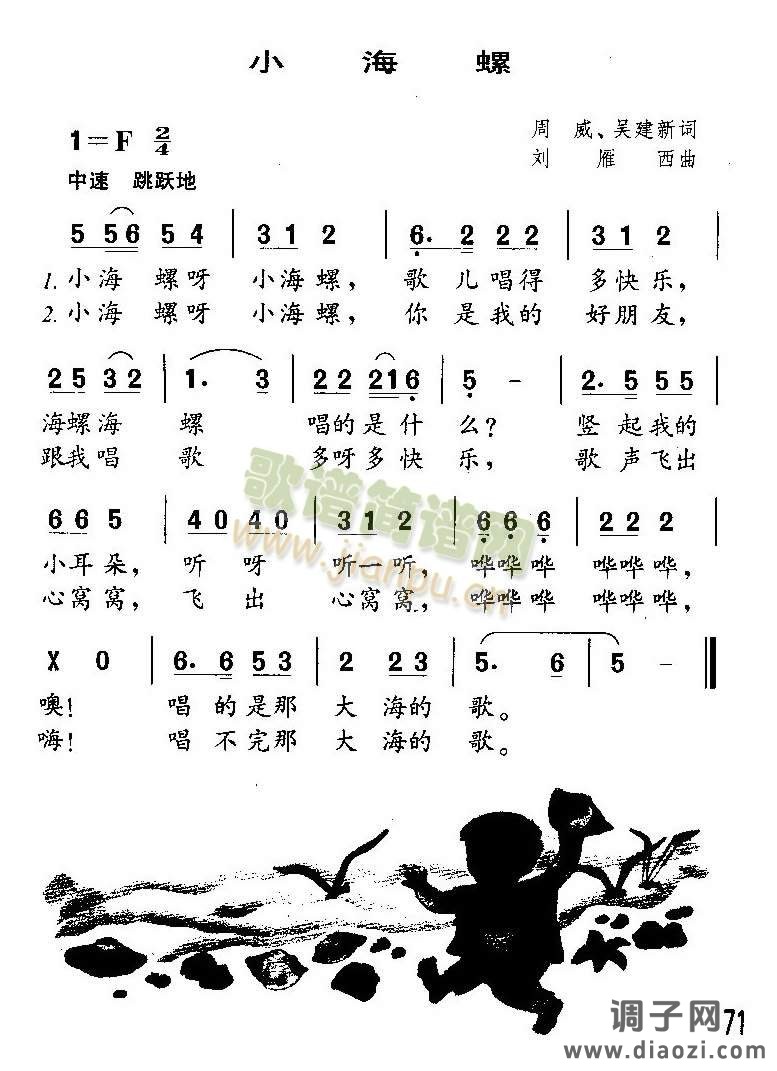 小海螺
1=F 2/4
周威、吴建新词
刘雁西曲
中速 跳跃地
5 56 54 | 31 2 | 6. 2 22 | 31 2 |
1. 小海 螺呀 小海螺, 歌儿唱得 多快乐,
2. 小海 螺呀 小海螺, 你是我的 好朋友,
25 32 | 1. 3 | 22 216 | 5 - | 2. 5 55 |
海螺海 螺 唱的是什 么? 竖起我的
跟我唱 歌 多呀多快 乐, 歌声飞出
66 5 | 40 40 | 31 2 | 66 6 | 22 2 |
小耳朵, 听呀 听一听, 哗哗哗 哗哗哗
心窝窝, 飞出 心窝窝, 哗哗哗 哗哗哗
X 0 | 6. 6 53 | 2 23 | 5. 6 | 5 - ‖
噢! 唱的是那 大海的 歌。
嗨! 唱不完那 大海的 歌。
歌谱简谱网
www.jianpu.cn
71
调子网
www.diaozi.com